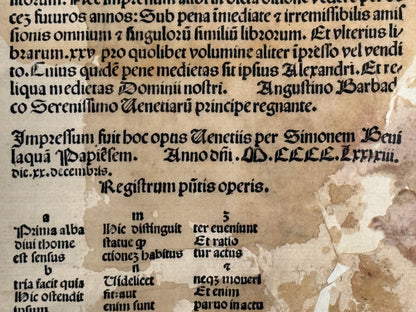 librorum. Nec impressum alibi in dicta ditione vendere per de
cez futuros annos: Sub pena īmediate & irremissibilis amis
sionis omnium & singulorū similiū librorum. Et vlterius li
brarum.xxv pro quolibet volumine aliter īpresso vel vendi
to. Cuius quidē pene medietas sit ipsius Alexandri. Et re-
liqua medietas Dominii nostri. Augustino Barbad
co Serenissimo Uenetiarū principe regnante.
Impressum fuit hoc opus Uenetiis per Simonem Beui
laquā Papiēsem. Anno dñi. M.CCCC.Lxxxxiii.
die.xx.decembris.
Registrum pñtis operis.
a
Prima alba
diui thome
est sensus
b
tria facit quia
Hic ostendit
ipsum
m
Hic distinguit
statue φ
ctionez habitus
n
Uidelicet
fit: aut
enim sunt
ʒ
ter eueniunt
Et ratio
tur actus
&
neqz moueri
Et enim
paruo in actu